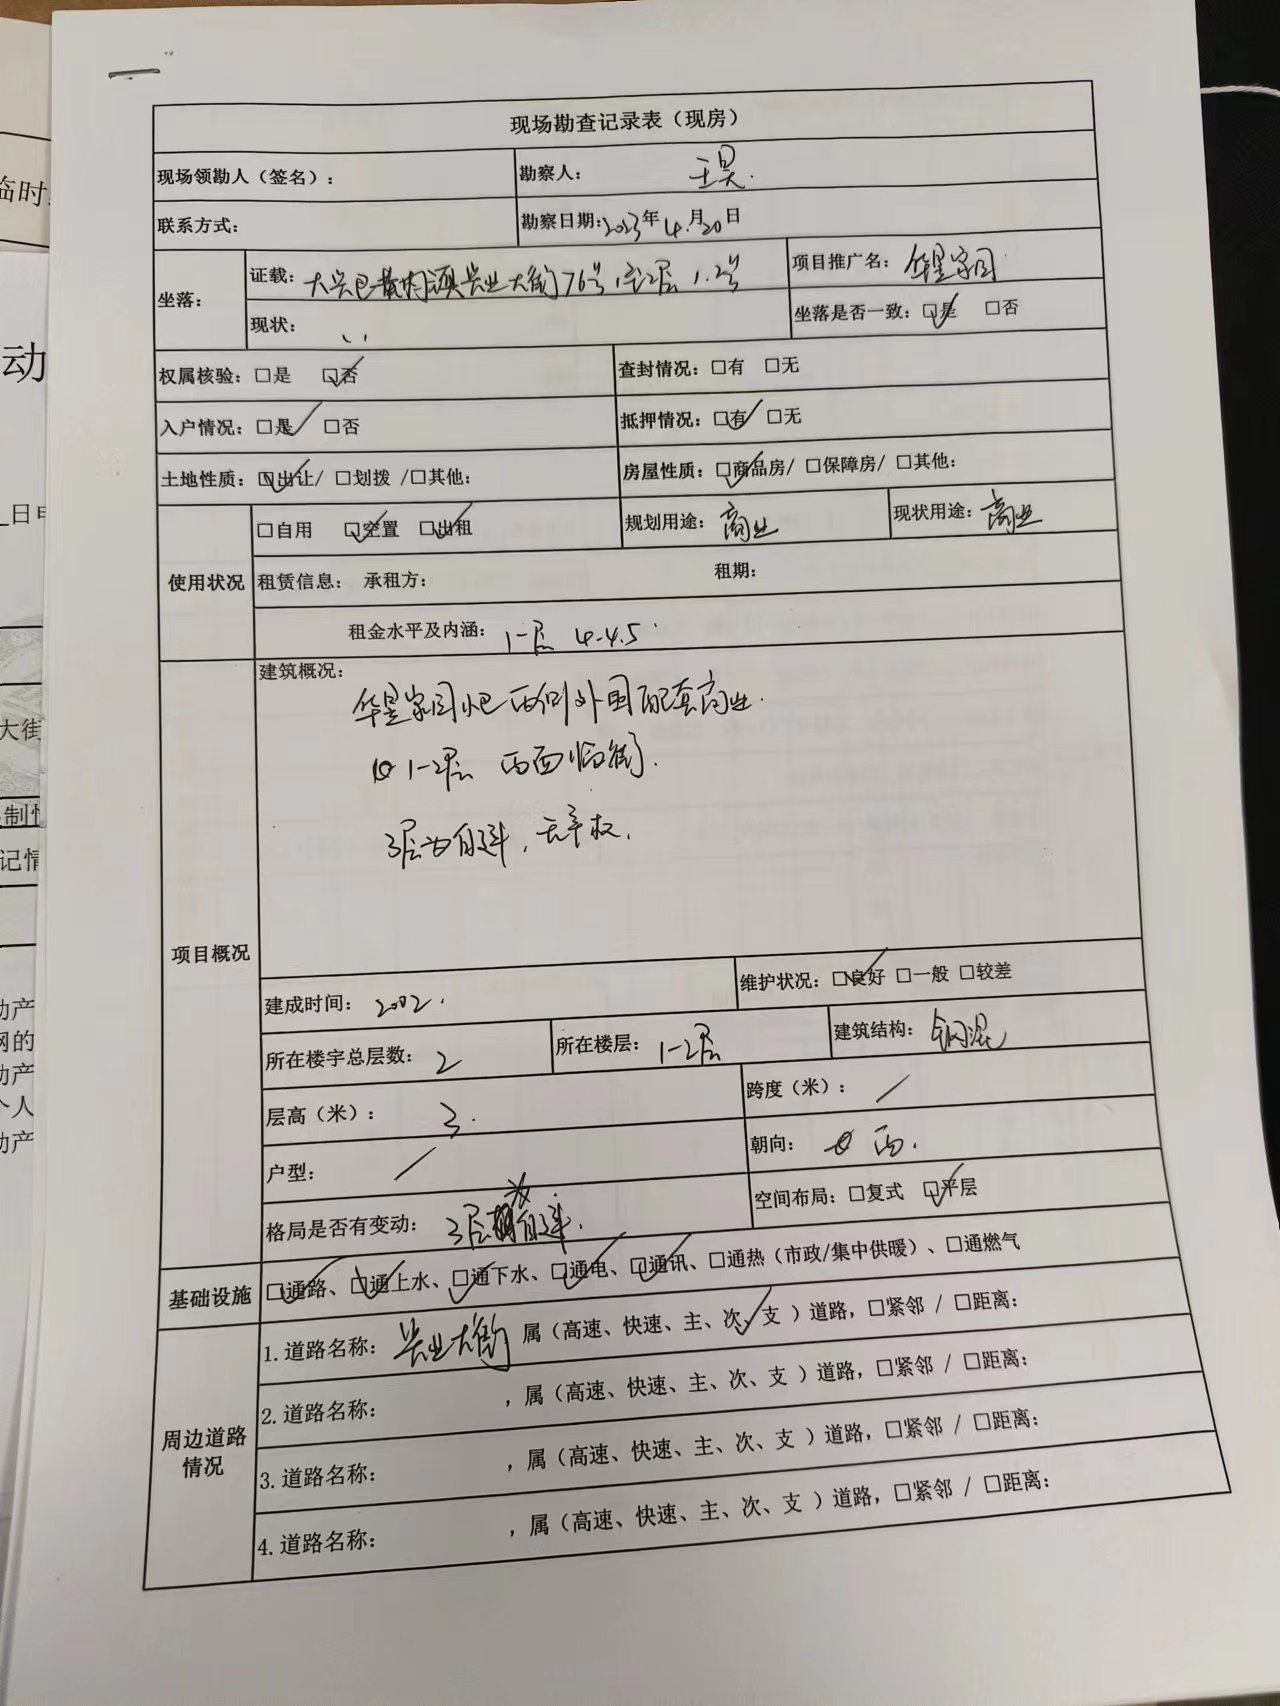 现场勘查记录表（现房）
现场领勘人（签名）：
勘察人： 王昊.
联系方式：
勘察日期：2023年4.月20日
坐落：
证载：大兴区黄村镇兴业大街76号1至2层1.2号
项目推广名：华昱家园
现状： 〃
坐落是否一致：☑是 □否
权属核验：□是 ☑否
查封情况：□有 □无
入户情况：☑是 □否
抵押情况：☑有 □无
土地性质：☑出让/ □划拨 /□其他：
房屋性质：☑商品房/ □保障房/ □其他：
使用状况
□自用 ☑空置 ☑出租
规划用途：商业
现状用途：商业
租赁信息： 承租方：
租期：
租金水平及内涵：1-层 4-4.5
项目概况
建筑概况：
华昱家园小区西侧外围配套商业.
1-2层 西面临街.
3层为自建，无产权.
建成时间：2002.
维护状况：☑良好 □一般 □较差
所在楼宇总层数：2
所在楼层：1-2层
建筑结构：钢混
层高（米）：3.
跨度（米）：/
户型：/
朝向：西.
格局是否有变动：3层为自建.
空间布局：□复式 ☑平层
基础设施
☑通路、☑通上水、☑通下水、☑通电、☑通讯、□通热（市政/集中供暖）、□通燃气
周边道路情况
1.道路名称：兴业大街 属（高速、快速、主、次✓支 ）道路，□紧邻 / □距离：
2.道路名称： ，属（高速、快速、主、次、支 ）道路，□紧邻 / □距离：
3.道路名称： ，属（高速、快速、主、次、支 ）道路，□紧邻 / □距离：
4.道路名称： ，属（高速、快速、主、次、支 ）道路，□紧邻 / □距离：
临时
动
大街
记情
动产
网的
动产
个人
动产